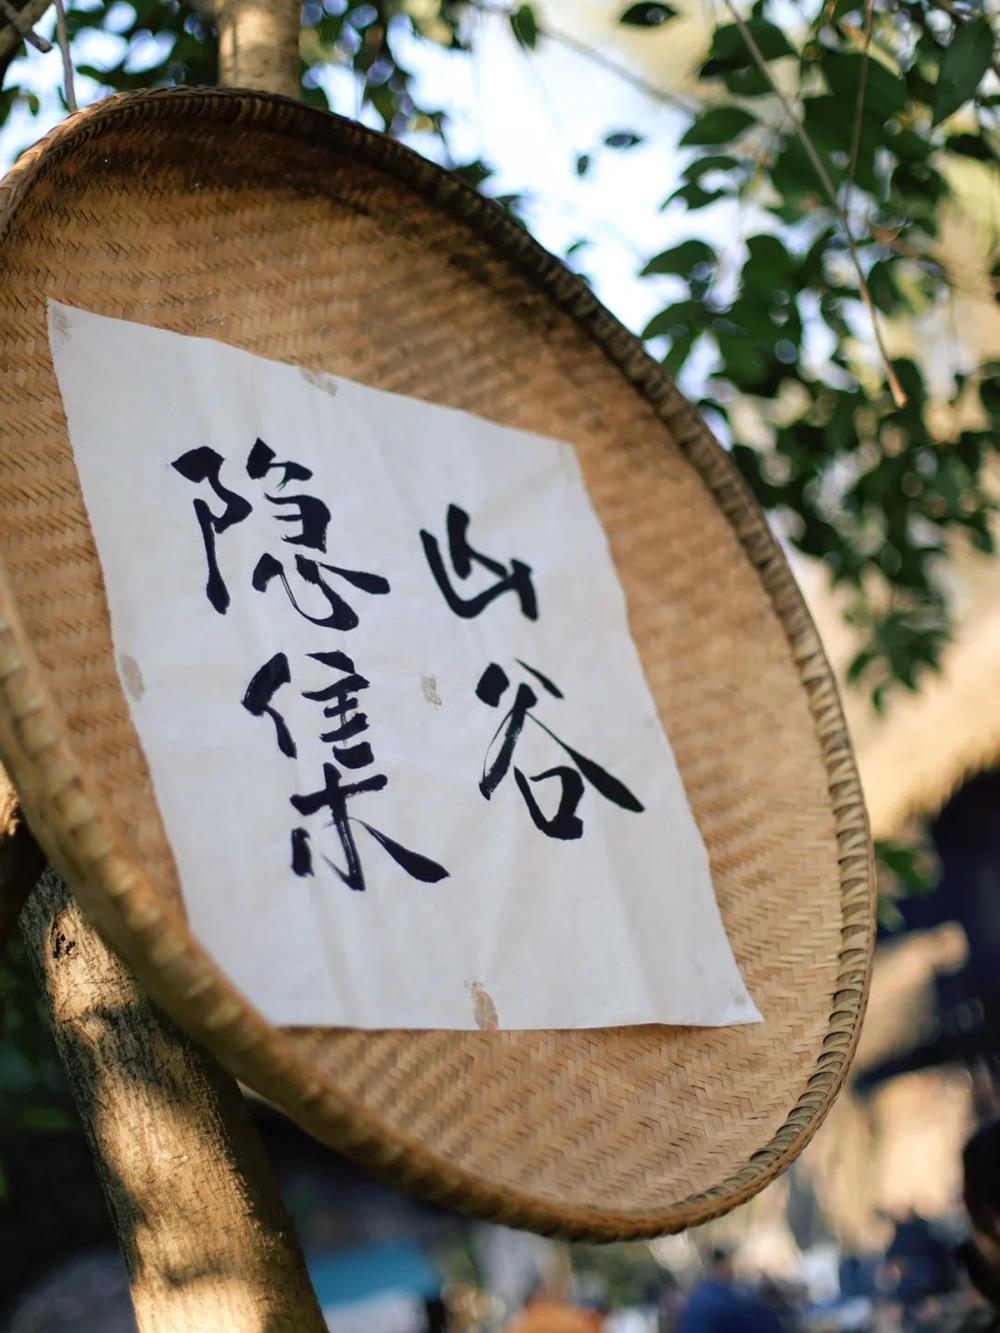 山谷
隐集